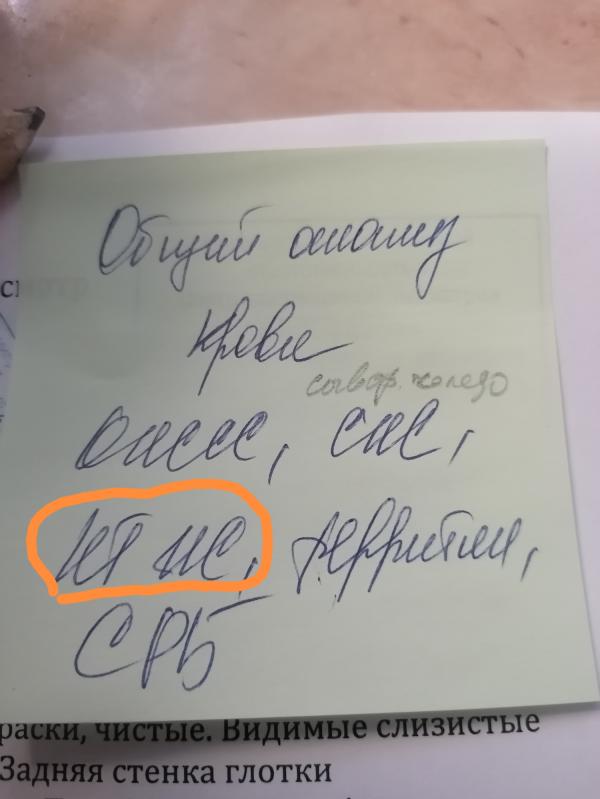 смотр
Общий анализ
крови
сывор. железо
ОЖСС, СЖС,
ферритин,
СРБ
раски, чистые. Видимые слизистые
Задняя стенка глотки